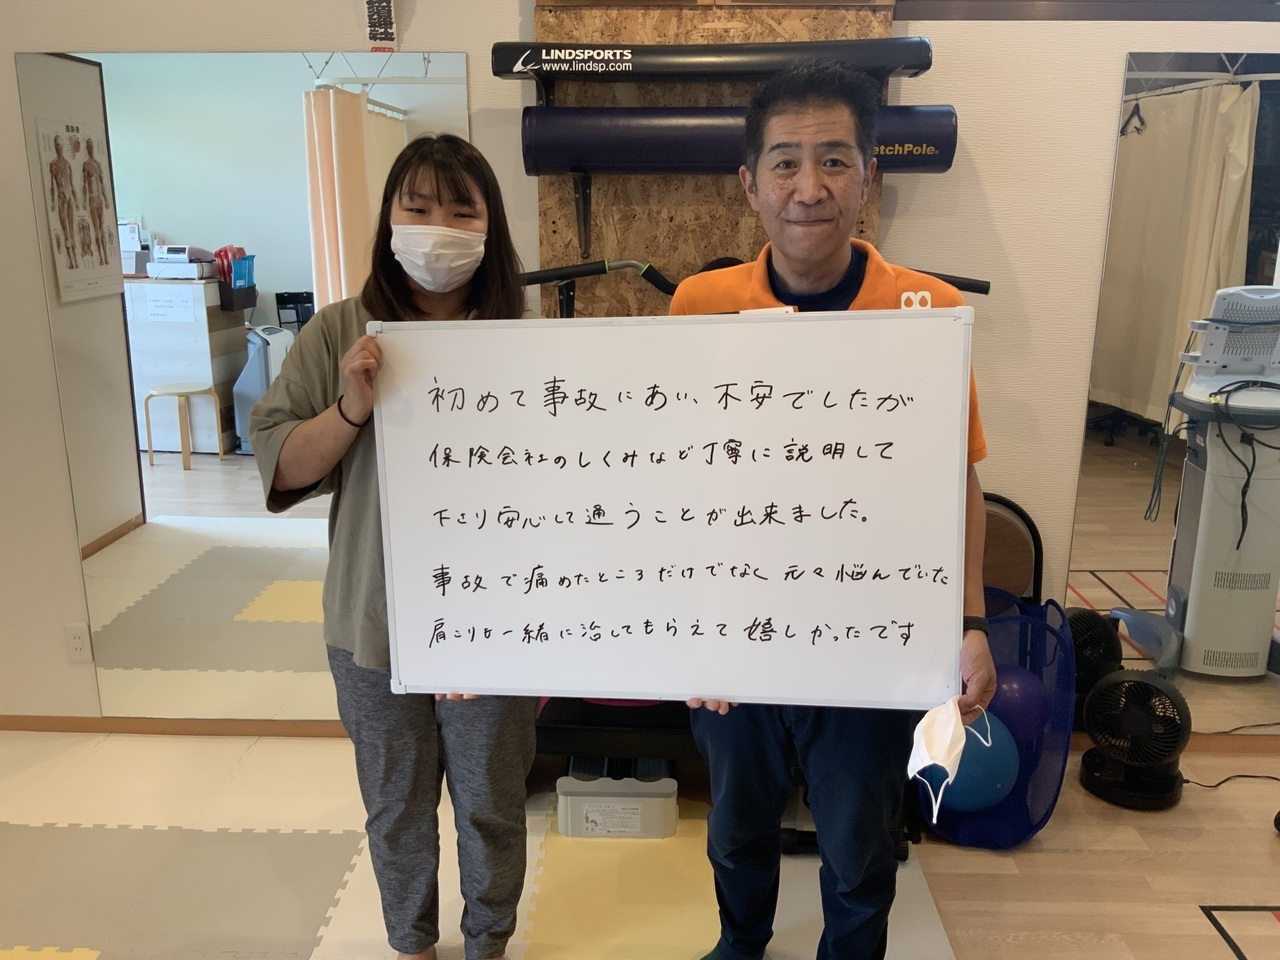 LINDSPORTS
www.lindsp.com
etchPole
初めて事故にあい、不安でしたが
保険会社のしくみなど丁寧に説明して
下さり安心して通うことが出来ました。
事故で痛めたところだけでなく元々悩んでいた
肩こりも一緒に治してもらえて嬉しかったです